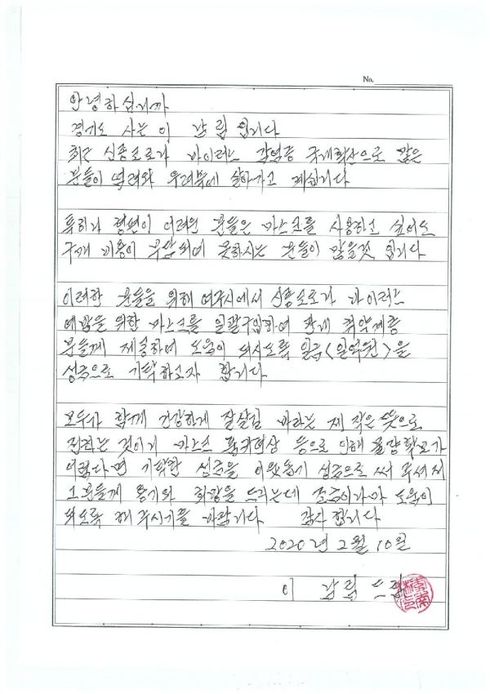 No.
안녕하십니까
경기도 사는 이 갑림 입니다
최근 신종코로나 바이러스 감염증 국내확산으로 많은
분들이 염려와 우려속에 살아가고 계십니다
특히나 형편이 어려운 분들은 마스크를 사용하고 싶어도
구매 비용이 부담되어 못하시는 분들이 많을것 입니다
이러한 분들을 위해 여주시에서 신종코로나 바이러스
예방을 위한 마스크를 일괄구입하여 관내 취약계층
분들께 제공하여 도움이 되시도록 일금(일억원)을
성금으로 기탁하고자 합니다
모두가 함께 건강하게 잘살길 바라는 제 작은 뜻으로
전하는 것이기 마스크 품귀현상 등으로 인해 물량확보가
어렵다면 기탁한 성금을 이웃돕기 성금으로 써 주셔서
그분들께 용기와 희망을 드리는데 조금이나마 도움이
되도록 해 주시기를 바랍니다 감사합니다
2020년 2월 10일
이 갑림 드림